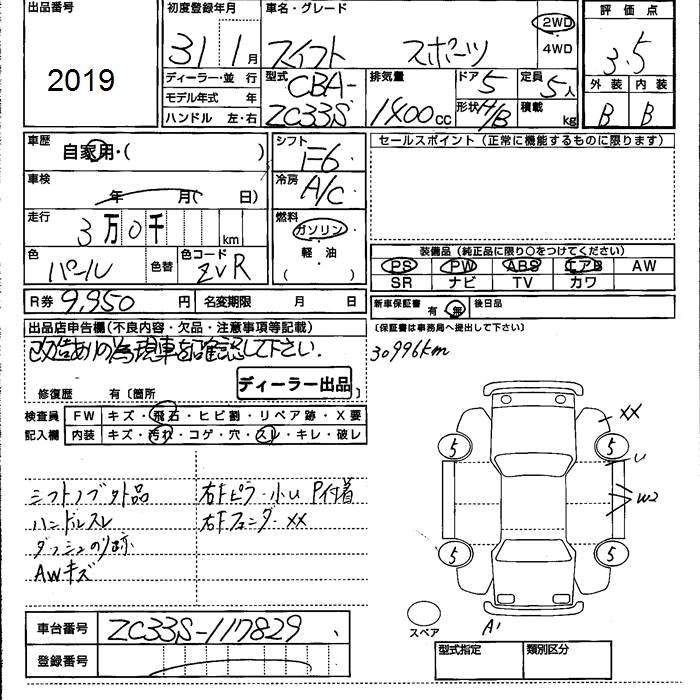 出品番号
2019
初度登録年月
31 1 月
車名・グレード
スイフト スポーツ
2WD
4WD
評価点
3.5
外装 内装
B B
ディーラー・並行
モデル年式 年
ハンドル 左・右
型式
CBA-
ZC33S
排気量
1400 cc
ドア 5
形状 H/B
定員 5人
積載 kg
車歴
自家用・( )
車検
年 月( 日)
走行
3万0千 km
色
パール
色替
色コード
ZVR
シフト
F6
冷房
A/C
燃料
ガソリン
軽油
( )
セールスポイント(正常に機能するものに限ります)
装備品(純正品に限り〇をつけてください)
PS PW ABS エアB AW
SR ナビ TV カワ
R券 9,950 円
名変期限 月 日
新車保証書 有 無
後日品
(保証書は事務局へ提出して下さい)
30996km
出品店申告欄(不良内容・欠品・注意事項等記載)
改造ありの為現車を確認して下さい.
修復歴 有〔箇所 〕
ディーラー出品
検査員
記入欄
FW キズ・飛石・ヒビ割・リペア跡・X要
内装 キズ・汚れ・コゲ・穴・スレ・キレ・破レ
シフトノブ外品
ハンドルスレ
ダッシュのり跡
AWキズ
右Fピラー小U P付着
右Fフェンダ-XX
XX
U
W2
5 5
5 5
スペア
A1
車台番号 ZC33S-117829
登録番号
型式指定 類別区分